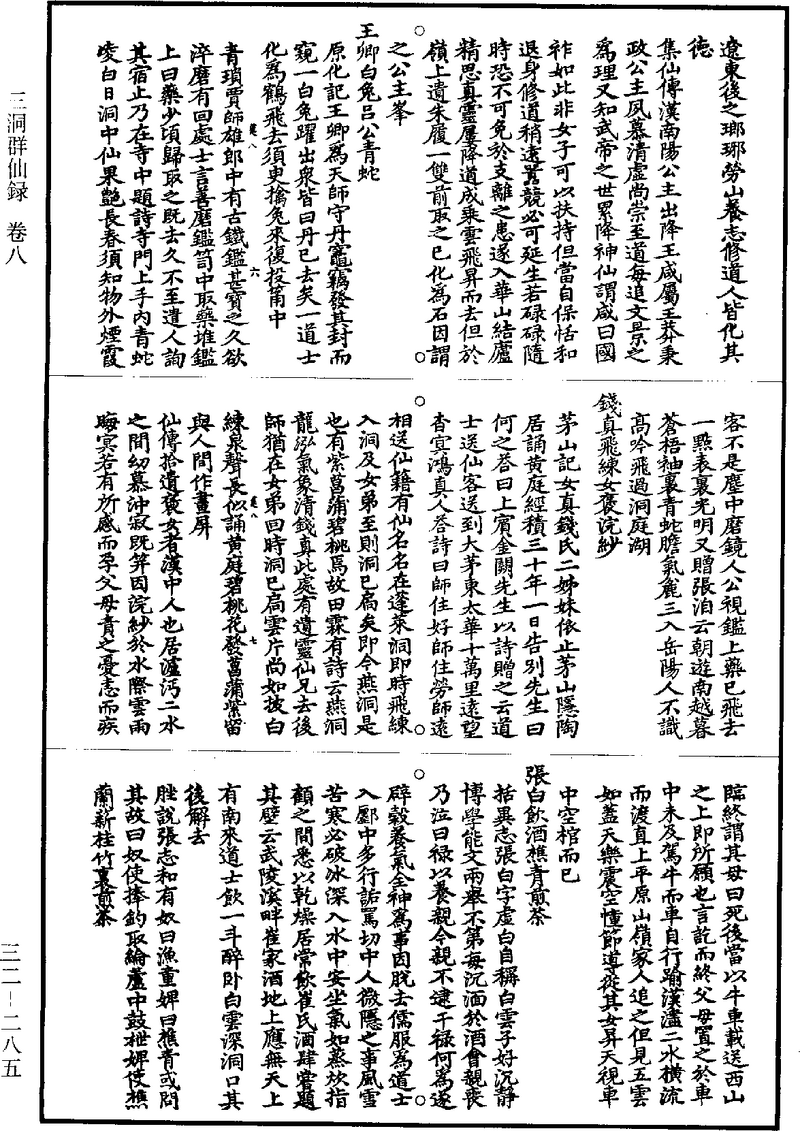 三洞群仙録　卷八
遼東後之瑯琊勞山養志修道人皆化其
德
集仙傳漢南陽公主出降王咸屬王莽秉
政公主夙慕清虛尚崇至道每追文景之
爲理又知武帝之世累降神仙謂咸曰國
祚如此非女子可以扶持但當自保恬和
退身修道稍遠囂競必可延生若碌碌隨
時恐不可免於支離之患遂入華山結廬
精思真靈屢降道成乘雲飛昇而去但於
嶺上遺朱履一雙前取之已化爲石因謂
之公主峯
王卿白兔呂公青蛇
原化記王卿爲天師守丹竈竊發其封而
窺一白兔躍出衆皆曰丹已去矣一道士
化爲鶴飛去須臾擒兔來復投筩中
青瑣賈師雄郎中有古鐵鑑甚寶之久欲
淬磨有回處士言善磨鑑笥中取藥堆鑑
上曰藥少頃歸取之既去久不至遣人詢
其宿止乃在寺中題詩寺門上手內青蛇
凌白日洞中仙果艷長春須知物外煙霞
客不是塵中磨鏡人公視鑑上藥已飛去
一點表裏光明又贈張洎云朝遊南越暮
蒼梧袖裏青蛇膽氣麄三入岳陽人不識
高吟飛過洞庭湖
錢真飛練女褒浣紗
茅山記女真錢氏二姊妹依止茅山隱陶
居誦黄庭經積三十年一日告別先生曰
何之荅曰上賓金闕先生以詩贈之云道
士送仙客送到大茅東太華十萬里遠望
杳冥鴻真人荅詩曰師住好師住勞師遠
相送仙籍有仙名名在蓬萊洞即時飛練
入洞及女弟至則洞已扃矣即今燕洞是
也有紫菖蒲碧桃焉故田霖有詩云燕洞
龍泓氣象清錢真此處有遺靈仙兄去後
師猶在女弟回時洞已扃雲片尚如披白
練泉聲長似誦黄庭碧桃花發菖蒲紫留
與人間作畫屏
仙傳拾遺褒女者漢中人也居瀘沔二水
之間幼慕沖寂既笄因浣紗於水際雲雨
晦冥若有所感而孕父母責之憂恚而疾
臨終謂其母曰死後當以牛車載送西山
之上即所願也言訖而終父母置之於車
中未及駕牛而車自行踰漢瀘二水横流
而渡直上平原山嶺家人追之但見五雲
如蓋天樂震空幢節導從其女昇天視車
中空棺而已
張白飲酒樵青煎茶
括異志張白字虛白自稱白雲子好沉静
博學能文兩舉不第每沉湎於酒會親喪
乃泣曰禄以養親今親不逮干禄何爲遂
辟穀養氣全神爲事因脱去儒服爲道士
入鄽中多行詬罵切中人微隱之事風雪
苦寒必破冰深入水中安坐氣如蒸炊指
顧之間悉以乾燥居常飲崔氏酒肆嘗題
其壁云武陵溪畔崔家酒地上應無天上
有南來道士飲一斗醉卧白雲深洞口其
後解去
脞說張志和有奴曰漁童婢曰樵青或問
其故曰奴使捧釣取綸蘆中鼓枻婢使樵
蘭薪桂竹裏煎茶
卷八　六
卷八　七
三二－二八五